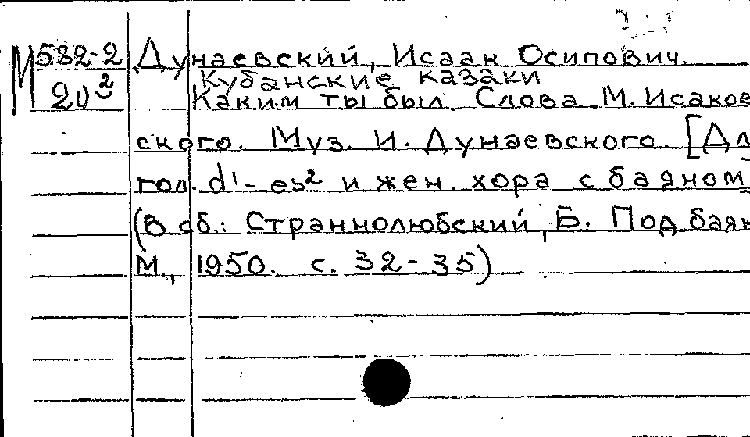 М 532-2 Дунаевский, Исаак Осипович.
Кубанские казаки
20² Каким ты был. Слова М. Исаков
ского. Муз. И. Дунаевского. [Дл
гол. d¹-es² и жен. хора с баяном
(В сб.: Страннолюбский, Б. Под баян
М., 1950. с. 32-35)